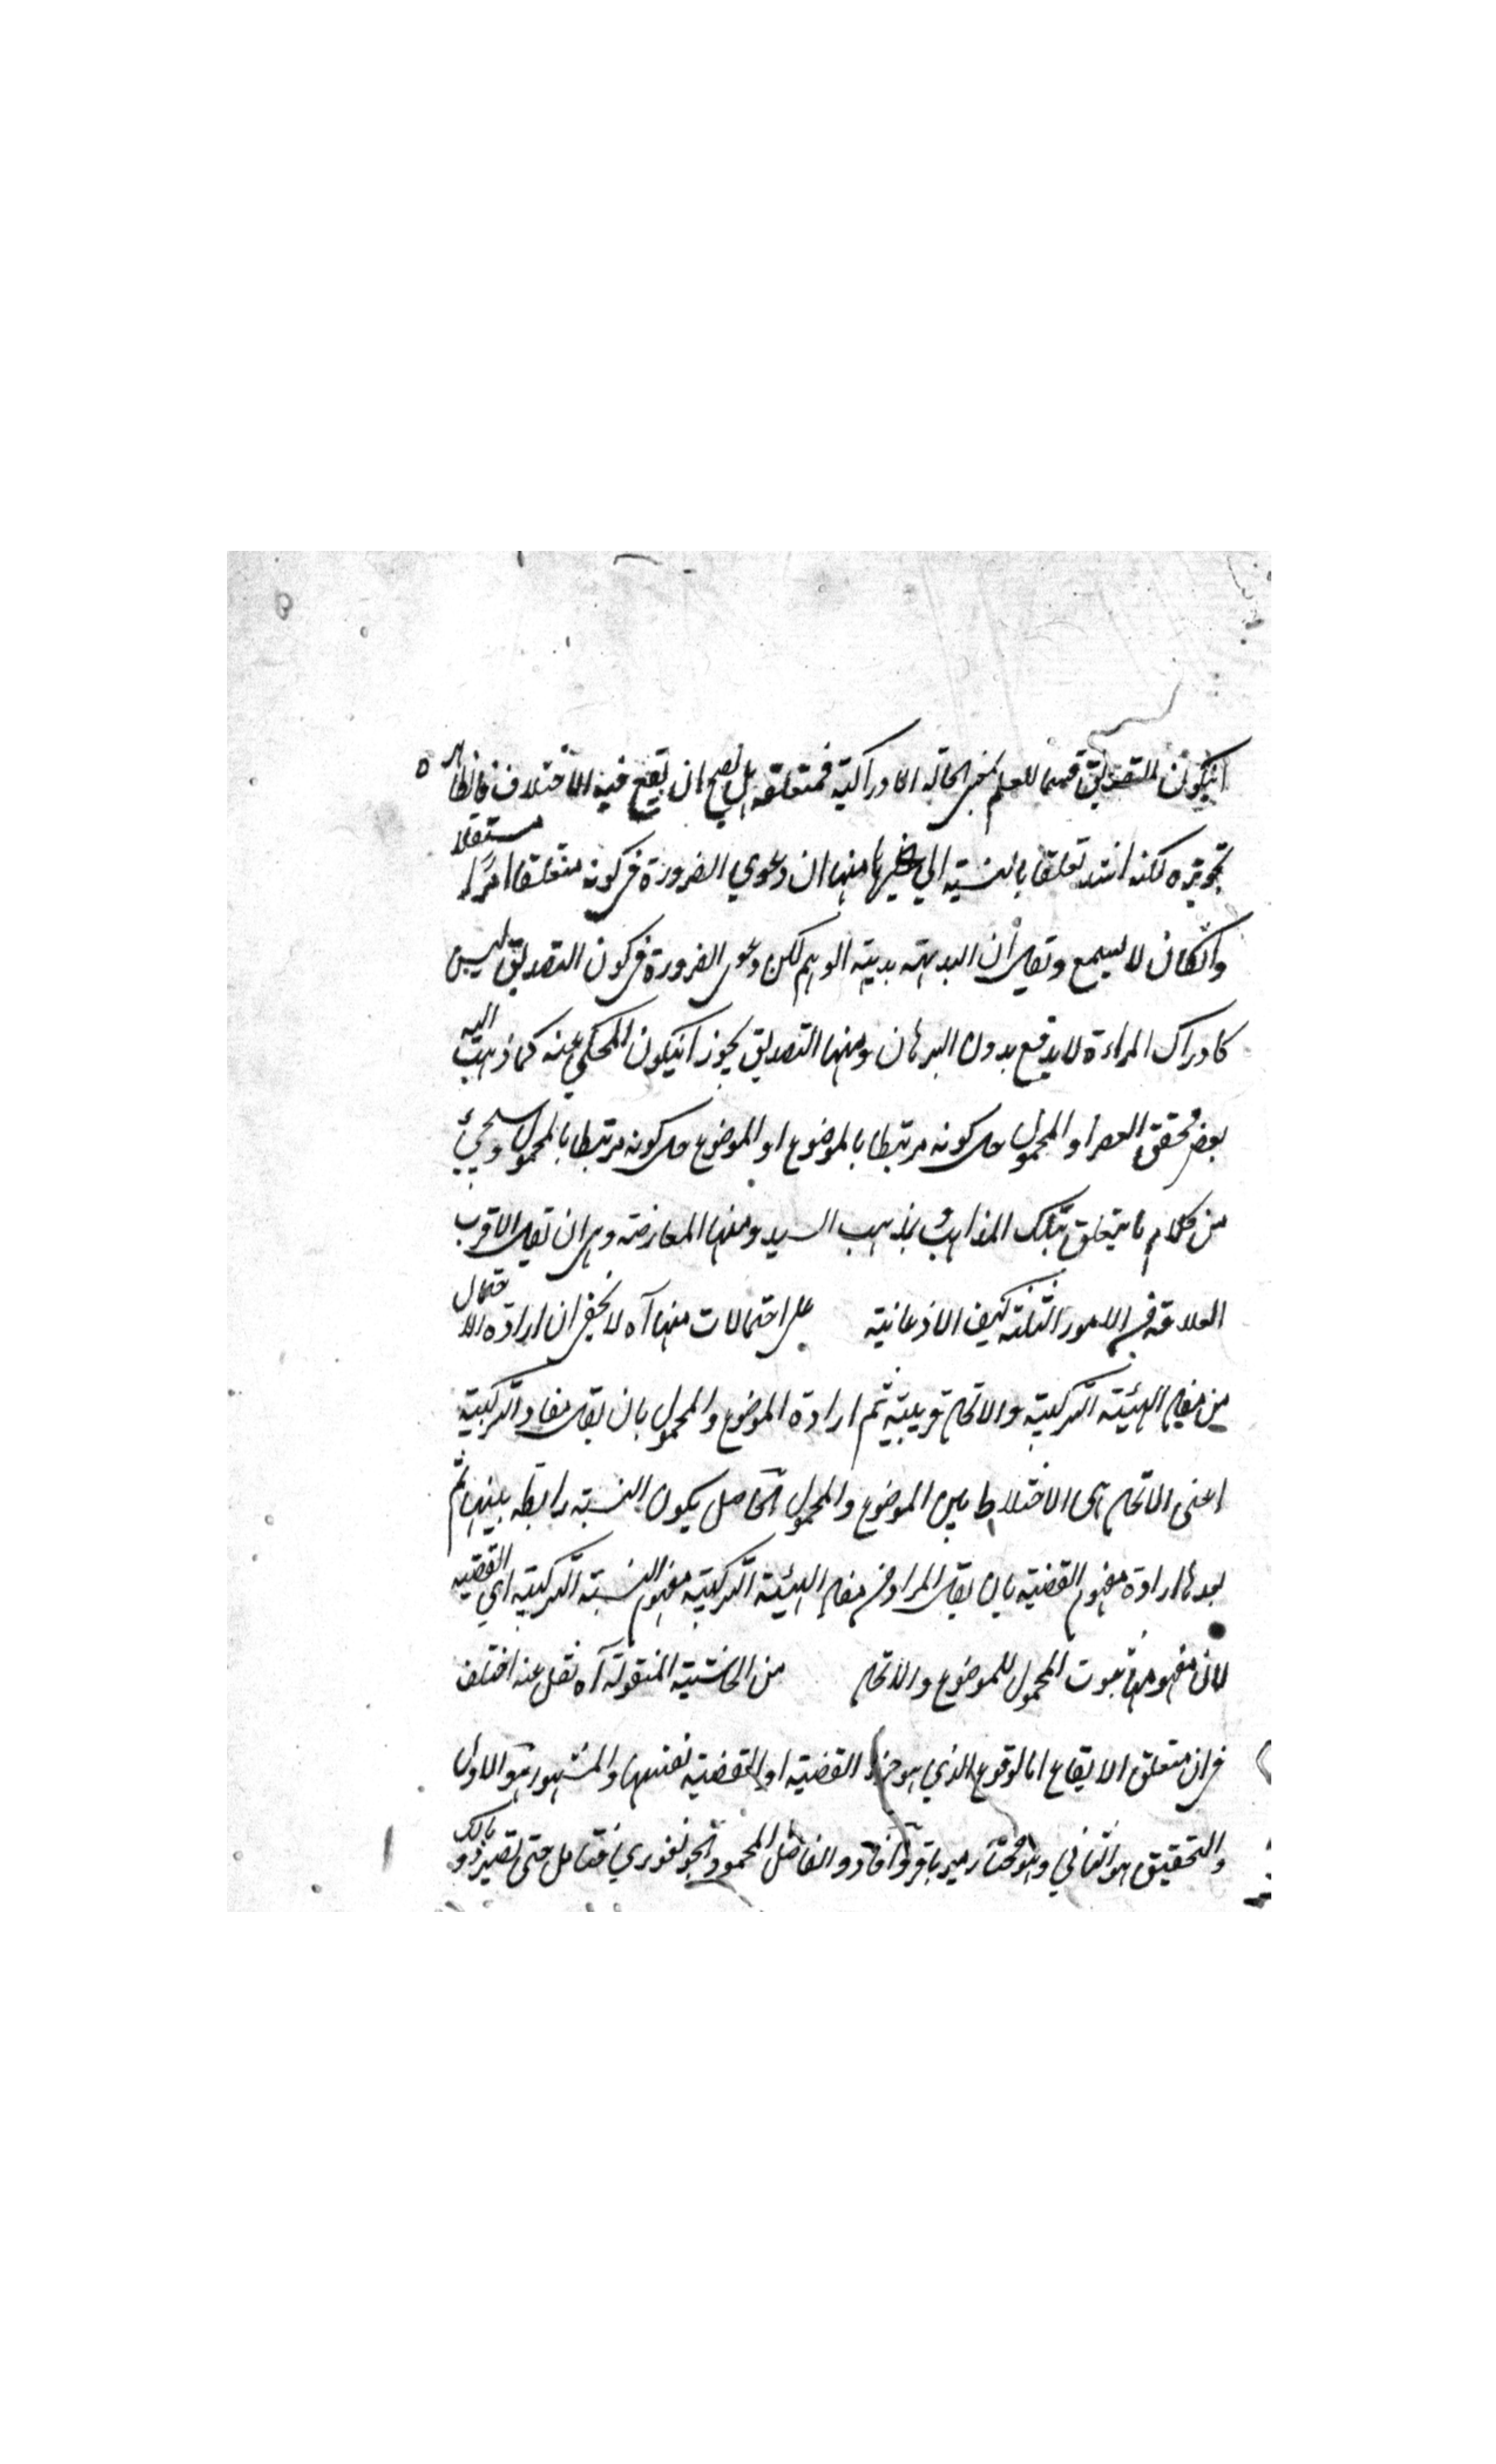 انيكون التصديق قسما للعلم بمعنى الحالة الادراكية فمتعلقه بل يصح ان يقع فيه الاختلاف فالظاهر
تجويزه لكنه اشد تعلقا بالنسبة الي غيرها منها ان دعوي الضرورة في كونه متعلقا امرا مستقلا
وانكان لا يسمع وتقل ان البديهة بديهة الوهم لكن دعوى الضرورة في كون التصديق ليس
كادراك المراءة لا يدفع بدون البرهان ومنها التصديق يجوز انيكون المحكي عنه كما ذهب اليه
بعض محققي العصر او المحمول حال كونه مرتبطا بالموضوع او الموضوع حال كونه مرتبطا بالمحمول وسيجيئ
من كلام ما يتعلق بتلك المذاهب و بمذهب السيد ومنها المعارضة وهي ان تقل الاقرب
العلاقة في الامور الثلثة كيف الاذعانية على احتمالات منها آه لا يخفى ان ارادة الاحتمال
من مفاد الهيئة التركيبية والاتحاد قريبة ثم ارادة الموضوع والمحمول بان يقال مفاد التركيبية
اعنى الاتحاد اى الاختلاط بين الموضوع والمحمول الحاصل يكون النسبة رابطة بينهما ثم
بعدها ارادة مفهوم القضية بان يقال المراد من مفاد الهيئة التركيبية مفهوم النسبة التركيبية اي القضية
لان مفهومها ثبوت المحمول للموضوع والاتحاد من الحاشية المنقولة آه نقل عنه اختلف
في ان متعلق الايقاع اما الوقوع الذي هو جزء القضية او القضية نفسها والمشهور هو الاول
والتحقيق هو الثاني وهو مختار مير باقر داماد والفاضل المحمود الجونفوري فتامل حتى تصير ذو بالك